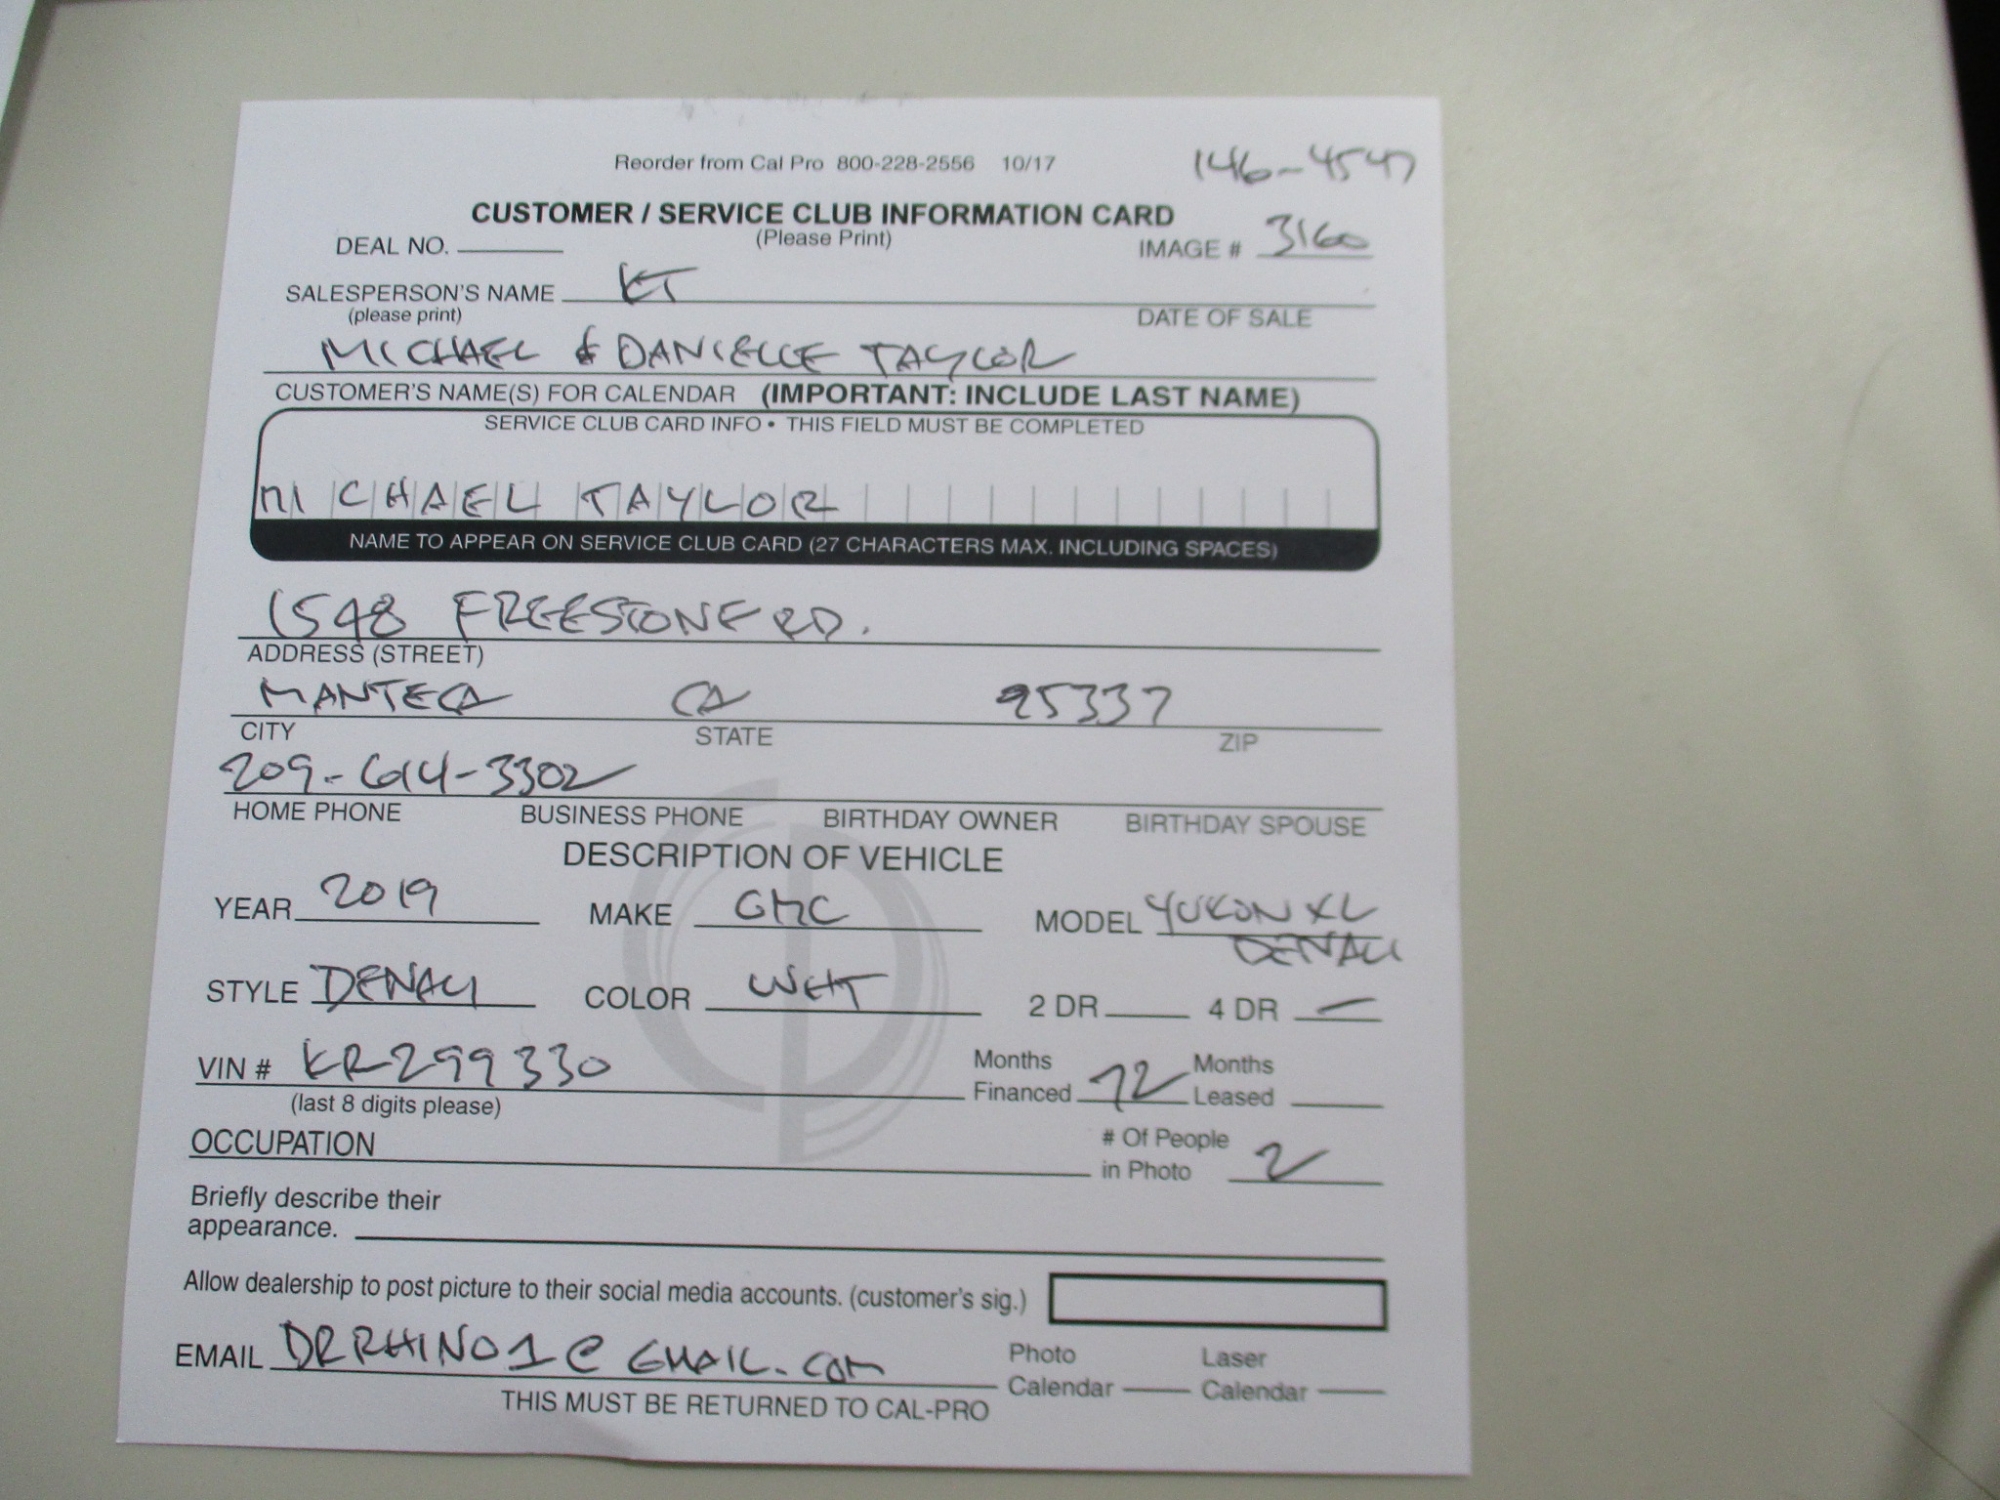 Reorder from Cal Pro 800-228-2556 10/17
146-4547
CUSTOMER / SERVICE CLUB INFORMATION CARD
DEAL NO. (Please Print) IMAGE # 3160
SALESPERSON'S NAME KT
(please print) DATE OF SALE
MICHAEL & DANIELLE TAYLOR
CUSTOMER'S NAME(S) FOR CALENDAR (IMPORTANT: INCLUDE LAST NAME)
SERVICE CLUB CARD INFO • THIS FIELD MUST BE COMPLETED
MICHAEL TAYLOR
NAME TO APPEAR ON SERVICE CLUB CARD (27 CHARACTERS MAX. INCLUDING SPACES)
1548 FREESTONE RD.
ADDRESS (STREET)
MANTECA CA 95337
CITY STATE ZIP
209-614-3302
HOME PHONE BUSINESS PHONE BIRTHDAY OWNER BIRTHDAY SPOUSE
DESCRIPTION OF VEHICLE
YEAR 2019 MAKE GMC MODEL YUKON XL
DENALI
STYLE DENALI COLOR WHT 2 DR 4 DR
VIN # KR299330 Months Financed 72 Months Leased
(last 8 digits please)
OCCUPATION # Of People in Photo 2
Briefly describe their
appearance.
Allow dealership to post picture to their social media accounts. (customer's sig.)
EMAIL DRRHINO1@GMAIL.COM Photo Calendar Laser Calendar
THIS MUST BE RETURNED TO CAL-PRO